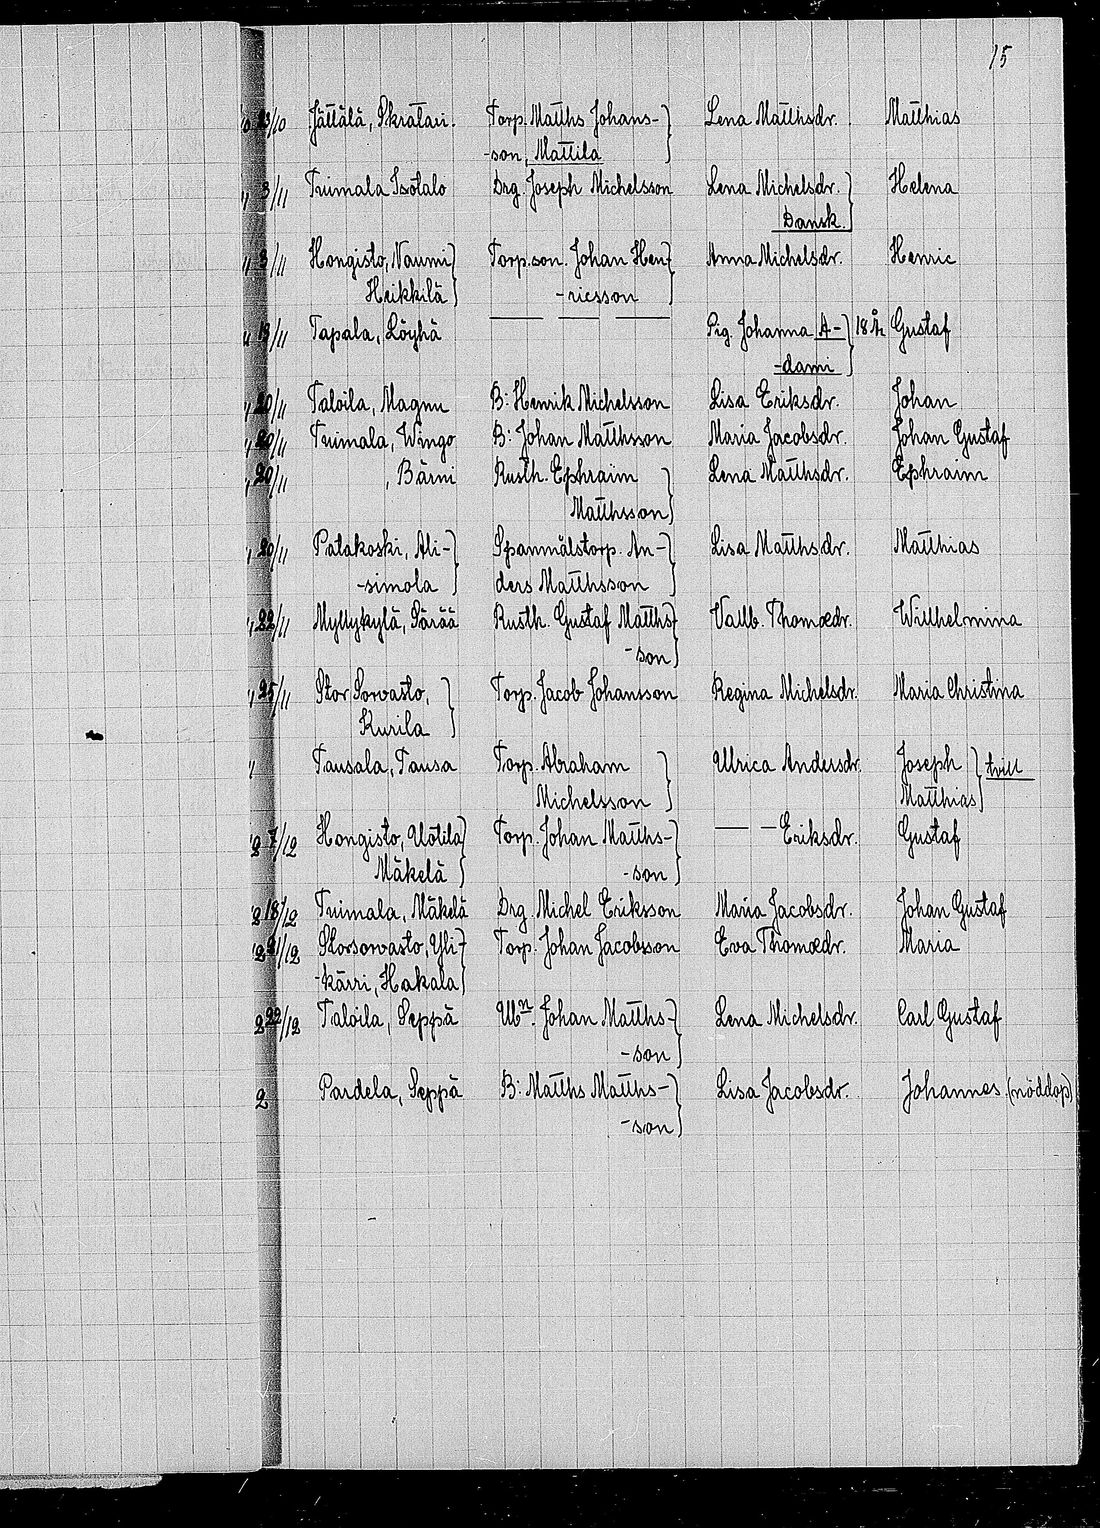 15
10 23/10 Jättälä, Skrätari. Torp. Matths Johans-} Lena Matthsdr. Matthias
-son, Mattila
" 3/11 Tuimala Isotalo Drg. Joseph Michelsson Lena Michelsdr.} Helena
Dansk.
" 3/11 Hongisto, Naumi} Torp.son. Johan Hen-} Anna Michelsdr. Henric
Heikkilä -ricsson
" 13/11 Tapala, Löyhä — — — Pig. Johanna A-} 18 År Gustaf
-dami
" 20/11 Taloila, Magnu B: Henrik Michelsson Lisa Eriksdr. Johan
" 20/11 Tuimala, Wingo B: Johan Matthsson Maria Jacobsdr. Johan Gustaf
" 20/11 , Bärni Rusth. Ephraim} Lena Matthsdr. Ephraim
Matthsson
" 20/11 Patakoski, Ali-} Spannmålstorp. An-} Lisa Matthsdr. Matthias
-simola ders Matthsson
" 22/11 Myllykylä, Särää Rusth. Gustaf Matths-} Vallb. Thomædr. Willhelmina
-son
" 25/11 Stor Sorvasto,} Torp. Jacob Johansson Regina Michelsdr. Maria Christina
Kurila
" Tausala, Tausa Torp. Abraham} Ulrica Andersdr. Joseph} tvill
Michelsson Matthias
12 7/12 Hongisto, Uotila} Torp. Johan Matths-} — — Eriksdr. Gustaf
Mäkelä -son
12 18/12 Tuimala, Mäkelä Drg. Michel Eriksson Maria Jacobsdr. Johan Gustaf
12 21/12 Storsorvasto, Yli-} Torp. Johan Jacobsson Eva Thomædr. Maria
-kärri, Hakala
2 22/12 Taloila, Seppä Ubn. Johan Matths-} Lena Michelsdr. Carl Gustaf
-son
2 Pardela, Seppä B: Matths Matths-} Lisa Jacobsdr. Johannes. (nöddop)
-son